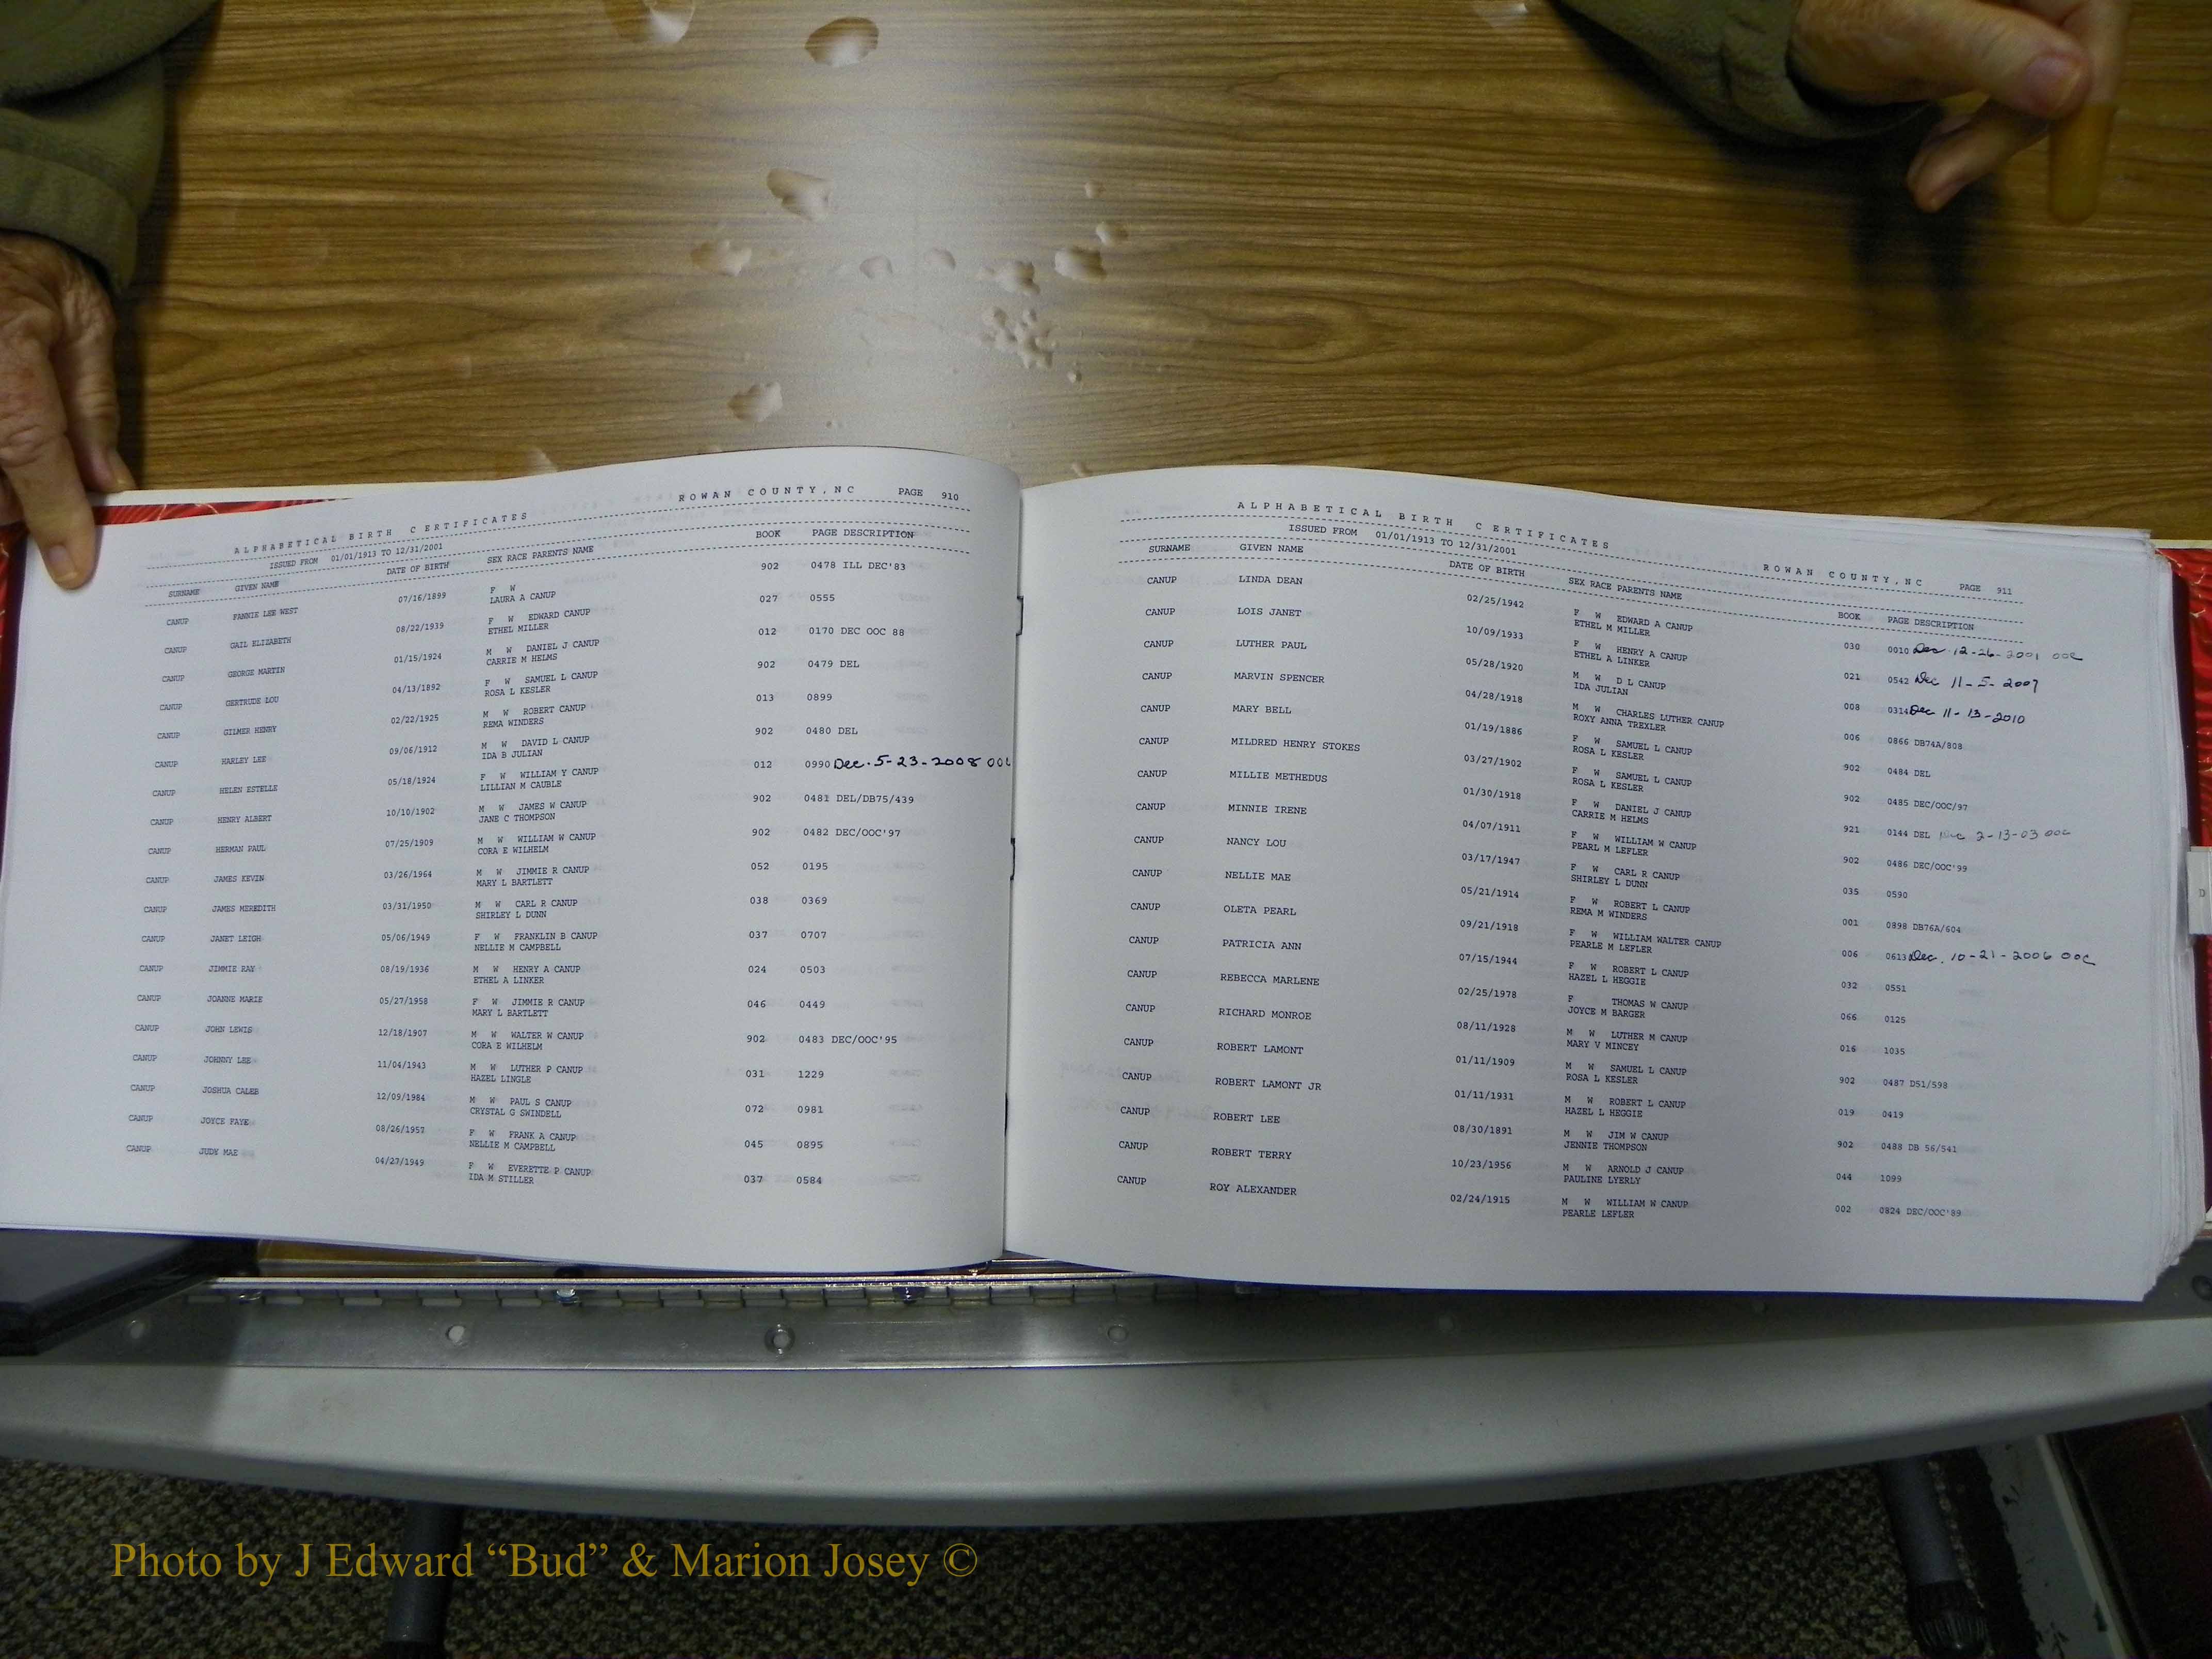 ALPHABETICAL BIRTH CERTIFICATES ROWAN COUNTY, NC PAGE 910
ISSUED FROM 01/01/1913 TO 12/31/2001
SURNAME GIVEN NAME DATE OF BIRTH SEX RACE PARENTS NAME BOOK PAGE DESCRIPTION
CANUP FANNIE LEE WEST 07/16/1899 F W 902 0478 ILL DEC'83
LAURA A CANUP
CANUP GAIL ELIZABETH 08/22/1939 F W EDWARD CANUP 027 0555
ETHEL MILLER
CANUP GEORGE MARTIN 01/15/1924 M W DANIEL J CANUP 012 0170 DEC OOC 88
CARRIE M HELMS
CANUP GERTRUDE LOU 04/13/1892 F W SAMUEL L CANUP 902 0479 DEL
ROSA L KESLER
CANUP GILMER HENRY 02/22/1925 M W ROBERT CANUP 013 0899
REMA WINDERS
CANUP HARLEY LEE 09/06/1912 M W DAVID L CANUP 902 0480 DEL
IDA B JULIAN
CANUP HELEN ESTELLE 05/18/1924 F W WILLIAM Y CANUP 012 0990 Dec. 5-23-2008 OOC
LILLIAN M CAUBLE
CANUP HENRY ALBERT 10/10/1902 M W JAMES W CANUP 902 0481 DEL/DB75/439
JANE C THOMPSON
CANUP HERMAN PAUL 07/25/1909 M W WILLIAM W CANUP 902 0482 DEC/OOC'97
CORA E WILHELM
CANUP JAMES KEVIN 03/26/1964 M W JIMMIE R CANUP 052 0195
MARY L BARTLETT
CANUP JAMES MEREDITH 03/31/1950 M W CARL R CANUP 038 0369
SHIRLEY L DUNN
CANUP JANET LEIGH 05/06/1949 F W FRANKLIN B CANUP 037 0707
NELLIE M CAMPBELL
CANUP JIMMIE RAY 08/19/1936 M W HENRY A CANUP 024 0503
ETHEL A LINKER
CANUP JOANNE MARIE 05/27/1958 F W JIMMIE R CANUP 046 0449
MARY L BARTLETT
CANUP JOHN LEWIS 12/18/1907 M W WALTER W CANUP 902 0483 DEC/OOC'95
CORA E WILHELM
CANUP JOHNNY LEE 11/04/1943 M W LUTHER P CANUP 031 1229
HAZEL LINGLE
CANUP JOSHUA CALEB 12/09/1984 M W PAUL S CANUP 072 0981
CRYSTAL G SWINDELL
CANUP JOYCE FAYE 08/26/1957 F W FRANK A CANUP 045 0895
NELLIE M CAMPBELL
CANUP JUDY MAE 04/27/1949 F W EVERETTE P CANUP 037 0584
IDA M STILLER
ALPHABETICAL BIRTH CERTIFICATES ROWAN COUNTY, NC PAGE 911
ISSUED FROM 01/01/1913 TO 12/31/2001
SURNAME GIVEN NAME DATE OF BIRTH SEX RACE PARENTS NAME BOOK PAGE DESCRIPTION
CANUP LINDA DEAN 02/25/1942 F W EDWARD A CANUP 030 0010 Dec 12-26-2001 OOC
ETHEL M MILLER
CANUP LOIS JANET 10/09/1933 F W HENRY A CANUP 021 0542 Dec 11-5-2007
ETHEL A LINKER
CANUP LUTHER PAUL 05/28/1920 M W D L CANUP 008 0314 Dec 11-13-2010
IDA JULIAN
CANUP MARVIN SPENCER 04/28/1918 M W CHARLES LUTHER CANUP 006 0866 DB74A/808
ROXY ANNA TREXLER
CANUP MARY BELL 01/19/1886 F W SAMUEL L CANUP 902 0484 DEL
ROSA L KESLER
CANUP MILDRED HENRY STOKES 03/27/1902 F W SAMUEL L CANUP 902 0485 DEC/OOC/97
ROSA L KESLER
CANUP MILLIE METHEDUS 01/30/1918 F W DANIEL J CANUP 921 0144 DEL Dec 2-13-03 OOC
CARRIE M HELMS
CANUP MINNIE IRENE 04/07/1911 F W WILLIAM W CANUP 902 0486 DEC/OOC'99
PEARL M LEFLER
CANUP NANCY LOU 03/17/1947 F W CARL R CANUP 035 0590
SHIRLEY L DUNN
CANUP NELLIE MAE 05/21/1914 F W ROBERT L CANUP 001 0898 DB76A/604
REMA M WINDERS
CANUP OLETA PEARL 09/21/1918 F W WILLIAM WALTER CANUP 006 0613 Dec. 10-21-2006 OOC
PEARLE M LEFLER
CANUP PATRICIA ANN 07/15/1944 F W ROBERT L CANUP 032 0551
HAZEL L HEGGIE
CANUP REBECCA MARLENE 02/25/1978 F THOMAS W CANUP 066 0125
JOYCE M BARGER
CANUP RICHARD MONROE 08/11/1928 M W LUTHER M CANUP 016 1035
MARY V MINCEY
CANUP ROBERT LAMONT 01/11/1909 M W SAMUEL L CANUP 902 0487 D51/598
ROSA L KESLER
CANUP ROBERT LAMONT JR 01/11/1931 M W ROBERT L CANUP 019 0419
HAZEL L HEGGIE
CANUP ROBERT LEE 08/30/1891 M W JIM W CANUP 902 0488 DB 56/541
JENNIE THOMPSON
CANUP ROBERT TERRY 10/23/1956 M W ARNOLD J CANUP 044 1099
PAULINE LYERLY
CANUP ROY ALEXANDER 02/24/1915 M W WILLIAM W CANUP 002 0824 DEC/OOC'89
PEARLE LEFLER
Photo by J Edward “Bud” & Marion Josey ©